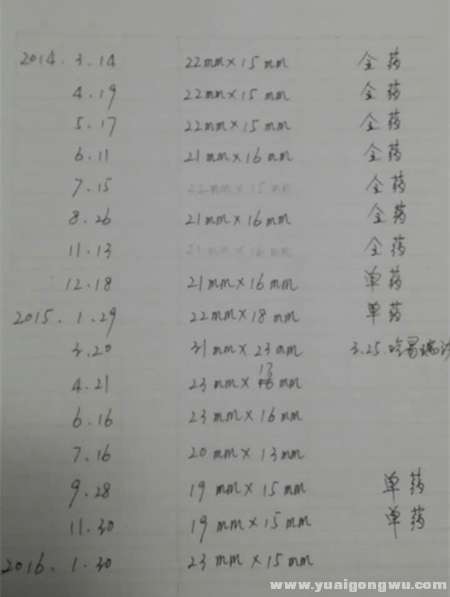 2014.3.14 22mm×15mm 全药
4.19 22mm×15mm 全药
5.17 22mm×15mm 全药
6.11 21mm×16mm 全药
7.15 22mm×15mm 全药
8.26 21mm×16mm 全药
11.13 21mm×16mm 全药
12.18 21mm×16mm 单药
2015.1.29 22mm×18mm 单药
3.20 31mm×23mm 3.25.吃易瑞沙
4.21 23mm×13mm
6.16 23mm×16mm
7.16 20mm×13mm
9.28 19mm×15mm 单药
11.30 19mm×15mm 单药
2016.1.30 23mm×15mm
www.yuaigongwu.com